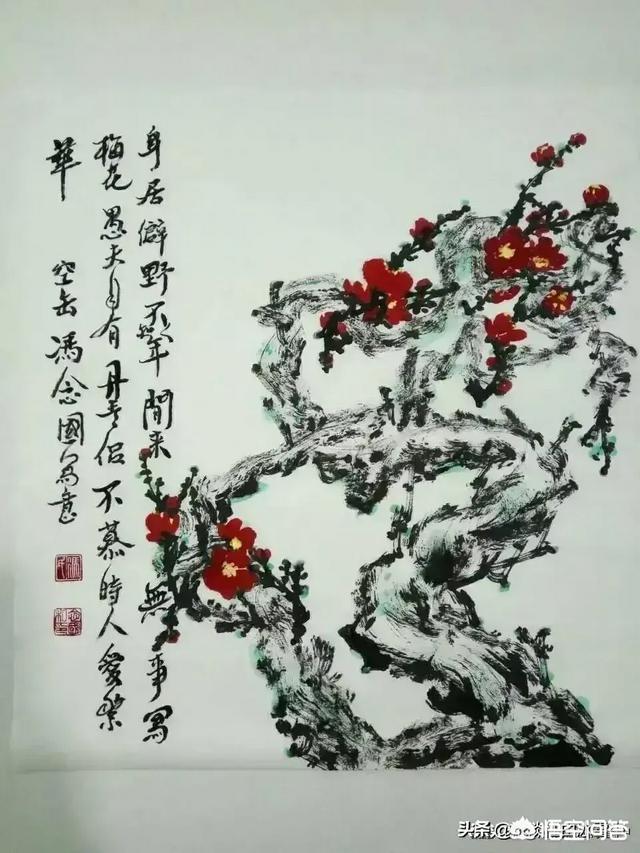 身居僻野不年間来無事寫
梅花愚夫自有丹青侣不慕時人愛繁
華
空缶馮念國寫意
头条
悟空问答